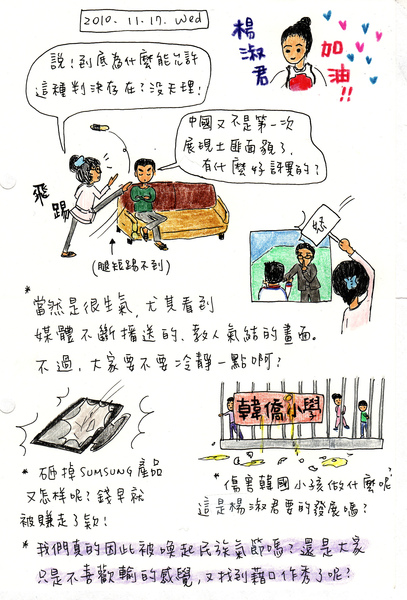 2010. 11. 17. Wed
楊淑君
加油!!
說!到底為什麼能允許
這種判決存在?沒天理!
中國又不是第一次
展現土匪面貌了,
有什麼好訝異的?
飛踢
(腿短踢不到)
怒
* 當然是很生氣,尤其看到
媒體不斷播送的、教人氣結的畫面。
不過,大家要不要冷靜一點啊?
韓僑小學
* 砸掉SUMSUNG產品
又怎樣呢?錢早就
被賺走了欸!
* 傷害韓國小孩做什麼呢?
這是楊淑君要的發展嗎?
* 我們真的因此被喚起民族氣節嗎?還是大家
只是不喜歡輸的感覺,又找到藉口作秀了呢?